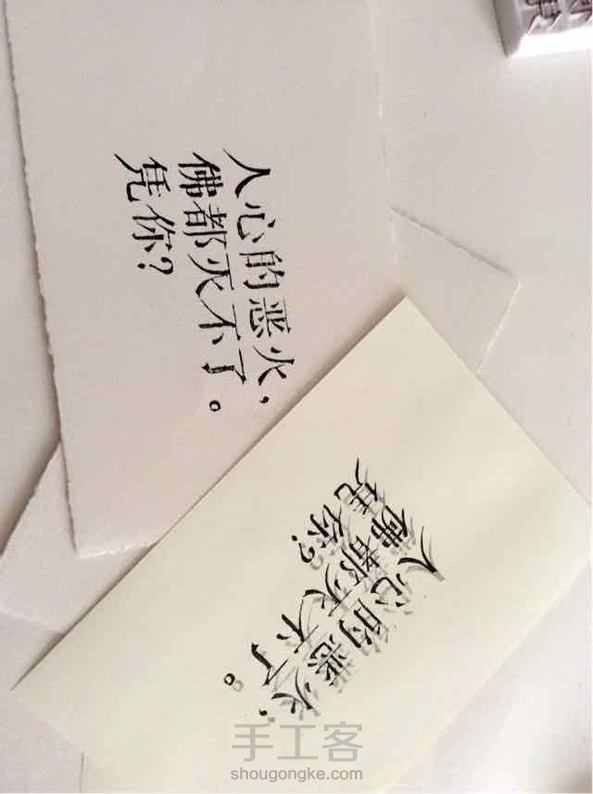 人心的恶火，
佛都灭不了。
凭你？
人心的恶火，
佛都灭不了。
凭你？
手工客
shougongke.com